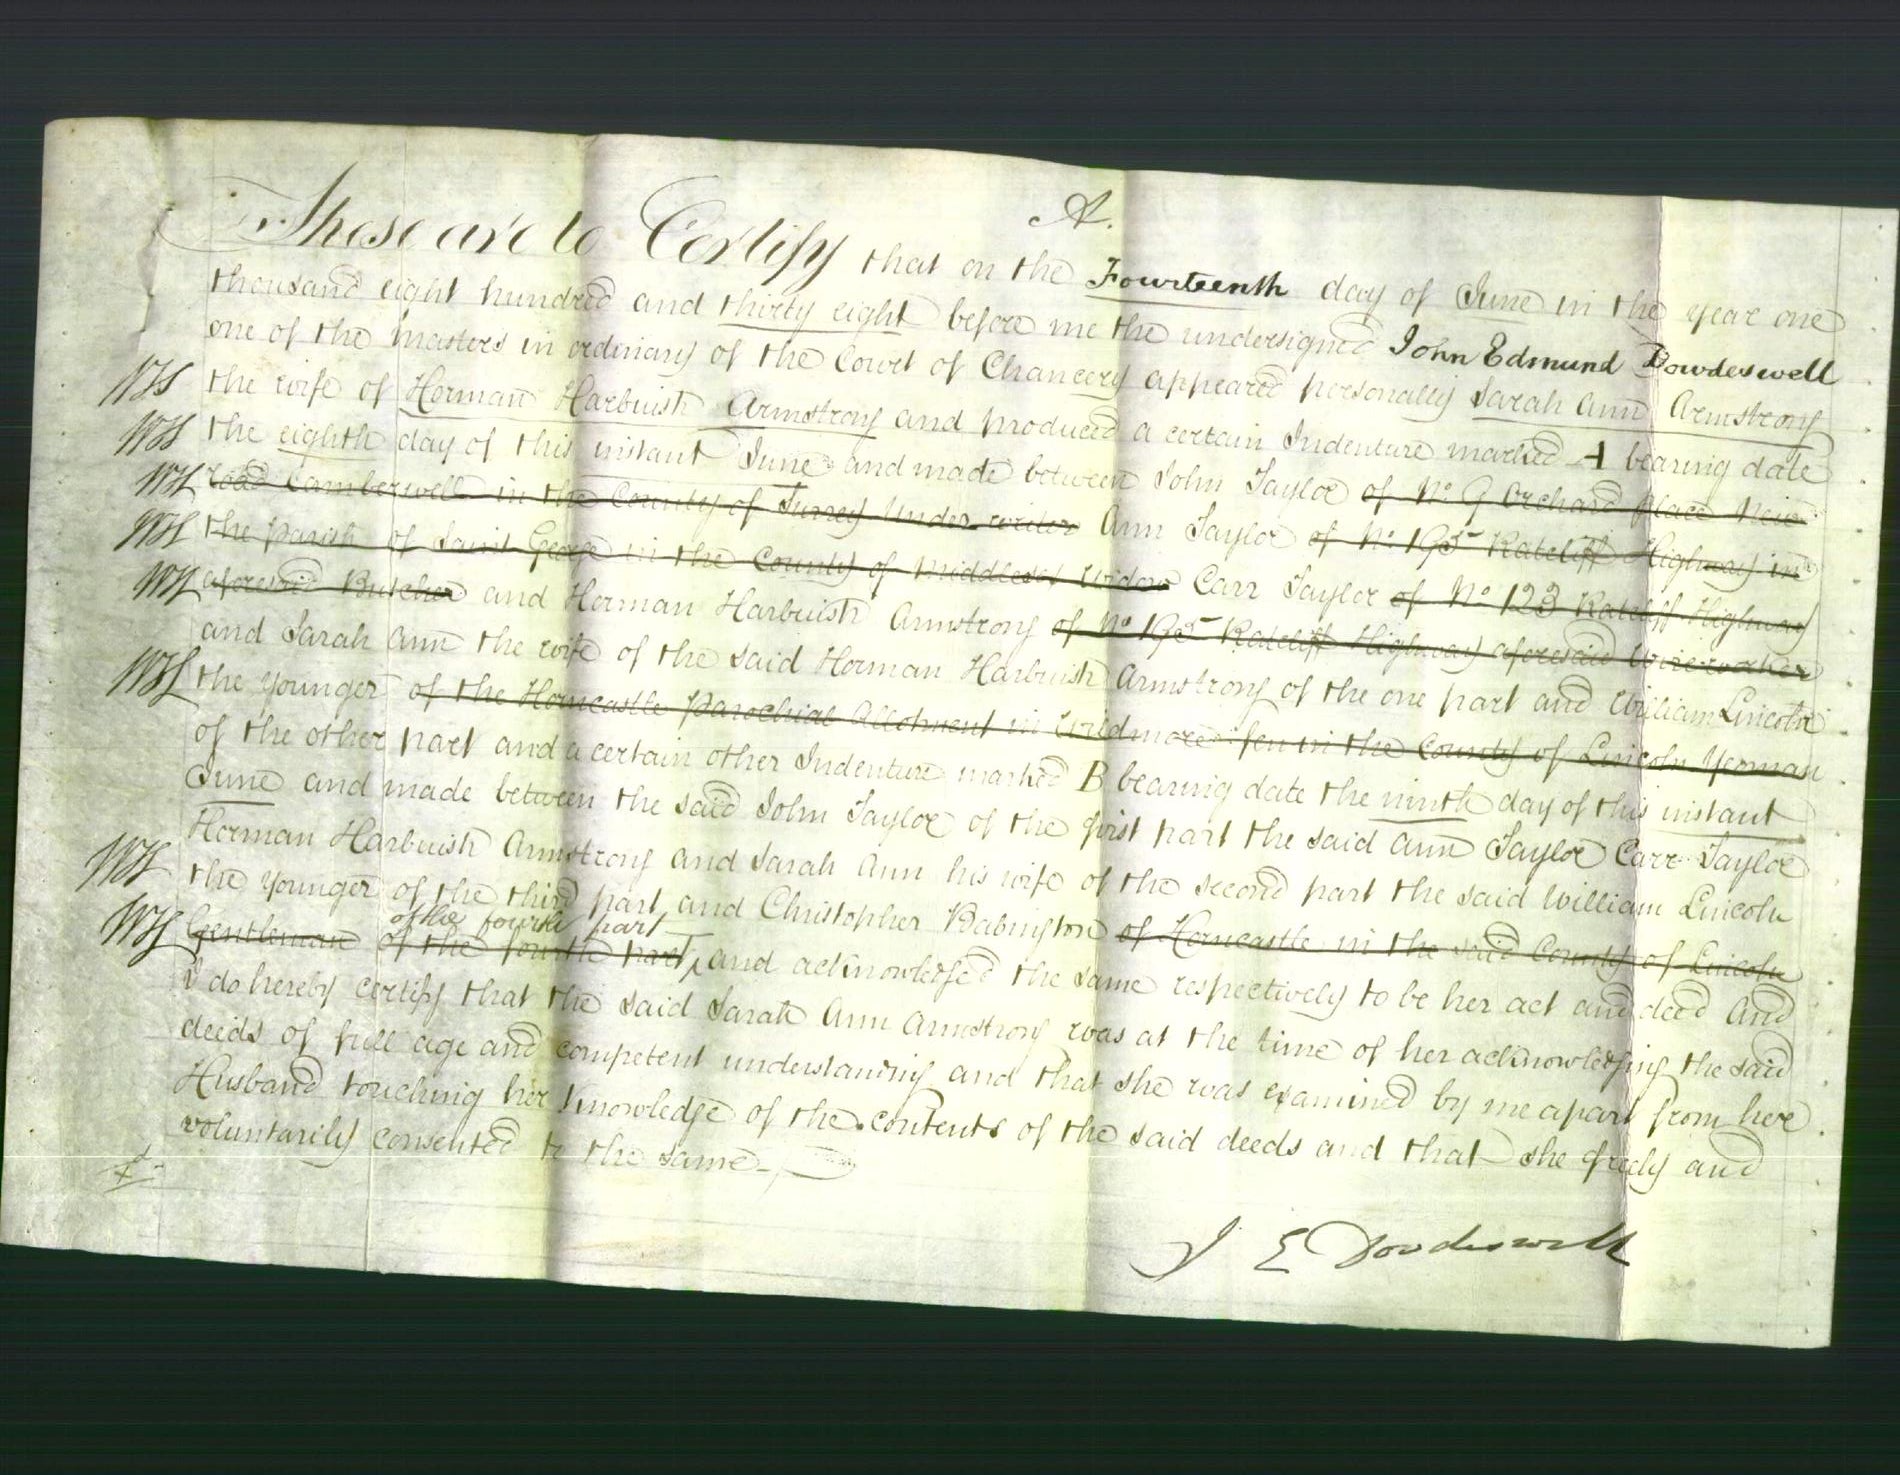 A.
These are to Certify that on the Fourteenth day of June in the year one
thousand eight hundred and thirty eight before me the undersigned John Edmund Dowdeswell
one of the Masters in ordinary of the Court of Chancery appeared personally Sarah Ann Armstrong
the wife of Herman Harbuish Armstrong and produced a certain Indenture marked A bearing date
the eighth day of this instant June and made between John Taylor of No. 9 Orchard place New
road Camberwell in the County of Surrey Under writer Ann Taylor of No. 195 Ratcliff Highway in
the parish of Saint George in the County of Middlesex Widow Carr Taylor of No. 123 Ratcliff Highway
aforesaid Butcher and Herman Harbuish Armstrong of No. 195 Ratcliff Highway aforesaid Wireworker
and Sarah Ann the wife of the said Herman Harbuish Armstrong of the one part and William Lincoln
the younger of the Horncastle Parochial Allotment in Wildmore fen in the County of Lincoln Yeoman
of the other part and a certain other Indenture marked B bearing date the ninth day of this instant
June and made between the said John Taylor of the first part the said Ann Taylor Carr Taylor
Herman Harbuish Armstrong and Sarah Ann his wife of the second part the said William Lincoln
the younger of the third part and Christopher Babington of Horncastle in the said County of Lincoln
of the fourth part
Gentleman of the fourth part, and acknowledged the same respectively to be her act and deed And
I do hereby certify that the said Sarah Ann Armstrong was at the time of her acknowledging the said
deeds of full age and competent understanding and that she was examined by me apart from her
Husband touching her knowledge of the contents of the said deeds and that she freely and
voluntarily consented to the same
J E Dowdeswell